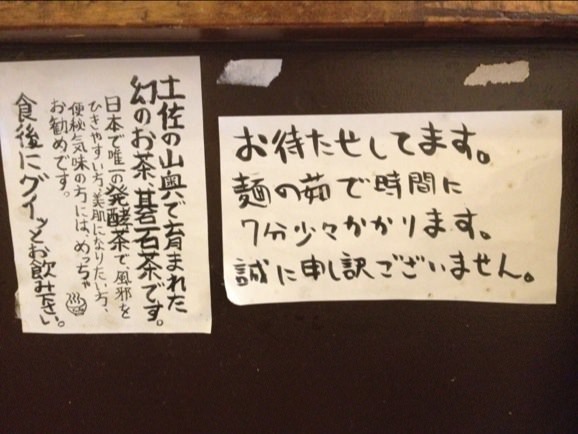 土佐の山奥で育まれた
幻のお茶、碁石茶です。
日本で唯一の発酵茶で、風邪を
ひきやすい方、美肌になりたい方、
便秘気味の方には、めっちゃ
お勧めです。
食後にグイッとお飲み下さい。
お待たせしてます。
麺の茹で時間に
7分少々かかります。
誠に申し訳ございません。